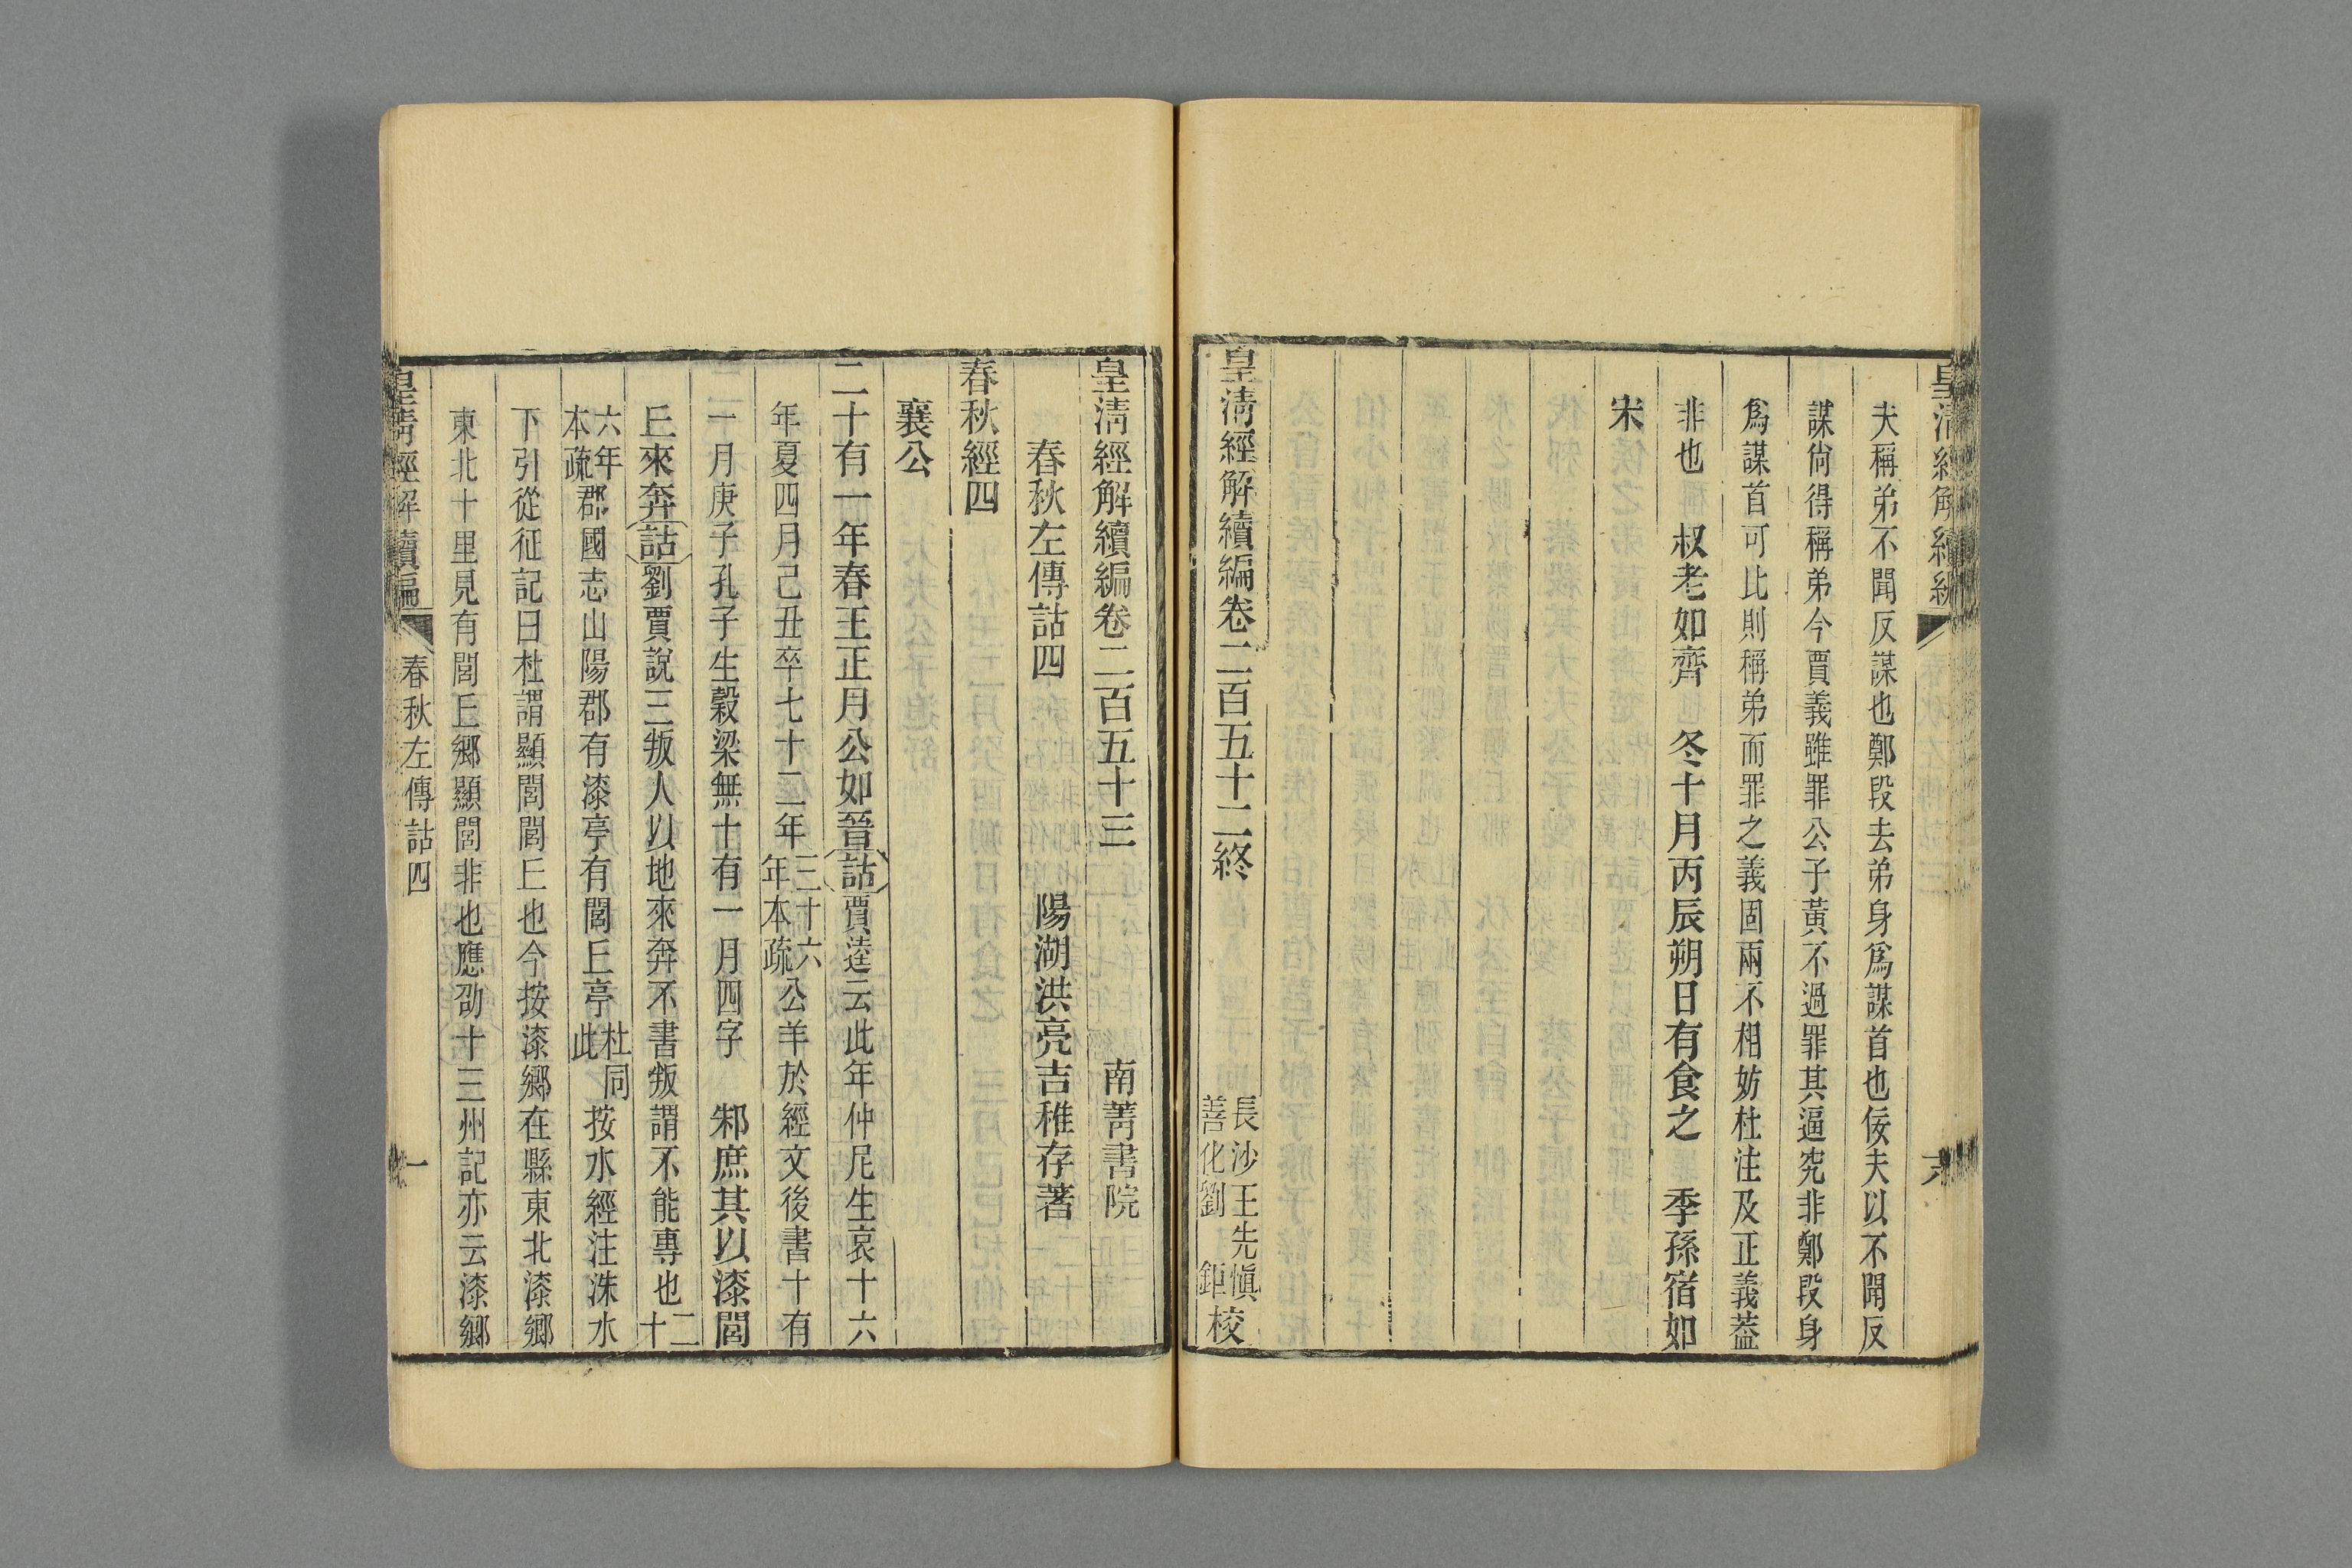 皇清經解續編
六
夫稱弟不聞反謀也鄭段去弟身爲謀首也佞夫以不聞反
謀尙得稱弟今賈義雖罪公子黃不過罪其逼究非鄭段身
爲謀首可比則稱弟而罪之義固兩不相妨杜注及正義蓋
非也 叔老如齊 冬十月丙辰朔日有食之 季孫宿如
宋
皇淸經解續編卷二百五十二終
長沙王先愼
善化劉 鉅
校
皇淸經解續編卷二百五十三 南菁書院
春秋左傳詁四 陽湖洪亮吉稚存著
春秋經四
襄公
二十有一年春王正月公如晉詁賈逵云此年仲尼生哀十六
年夏四月己丑卒七十二年三十六年本疏公羊於經文後書十有
一月庚子孔子生穀梁無十有一月四字 邾庶其以漆閭
丘來奔詁劉賈說三叛人以地來奔不書叛謂不能專也二十
六年本疏郡國志山陽郡有漆亭有閭丘亭杜同此按水經注洙水
下引從征記曰杜謂顯閭閭丘也今按漆鄉在縣東北漆鄉
東北十里見有閭丘鄉顯閭非也應劭十三州記亦云漆鄉
皇淸經解續編 春秋左傳詁四 一